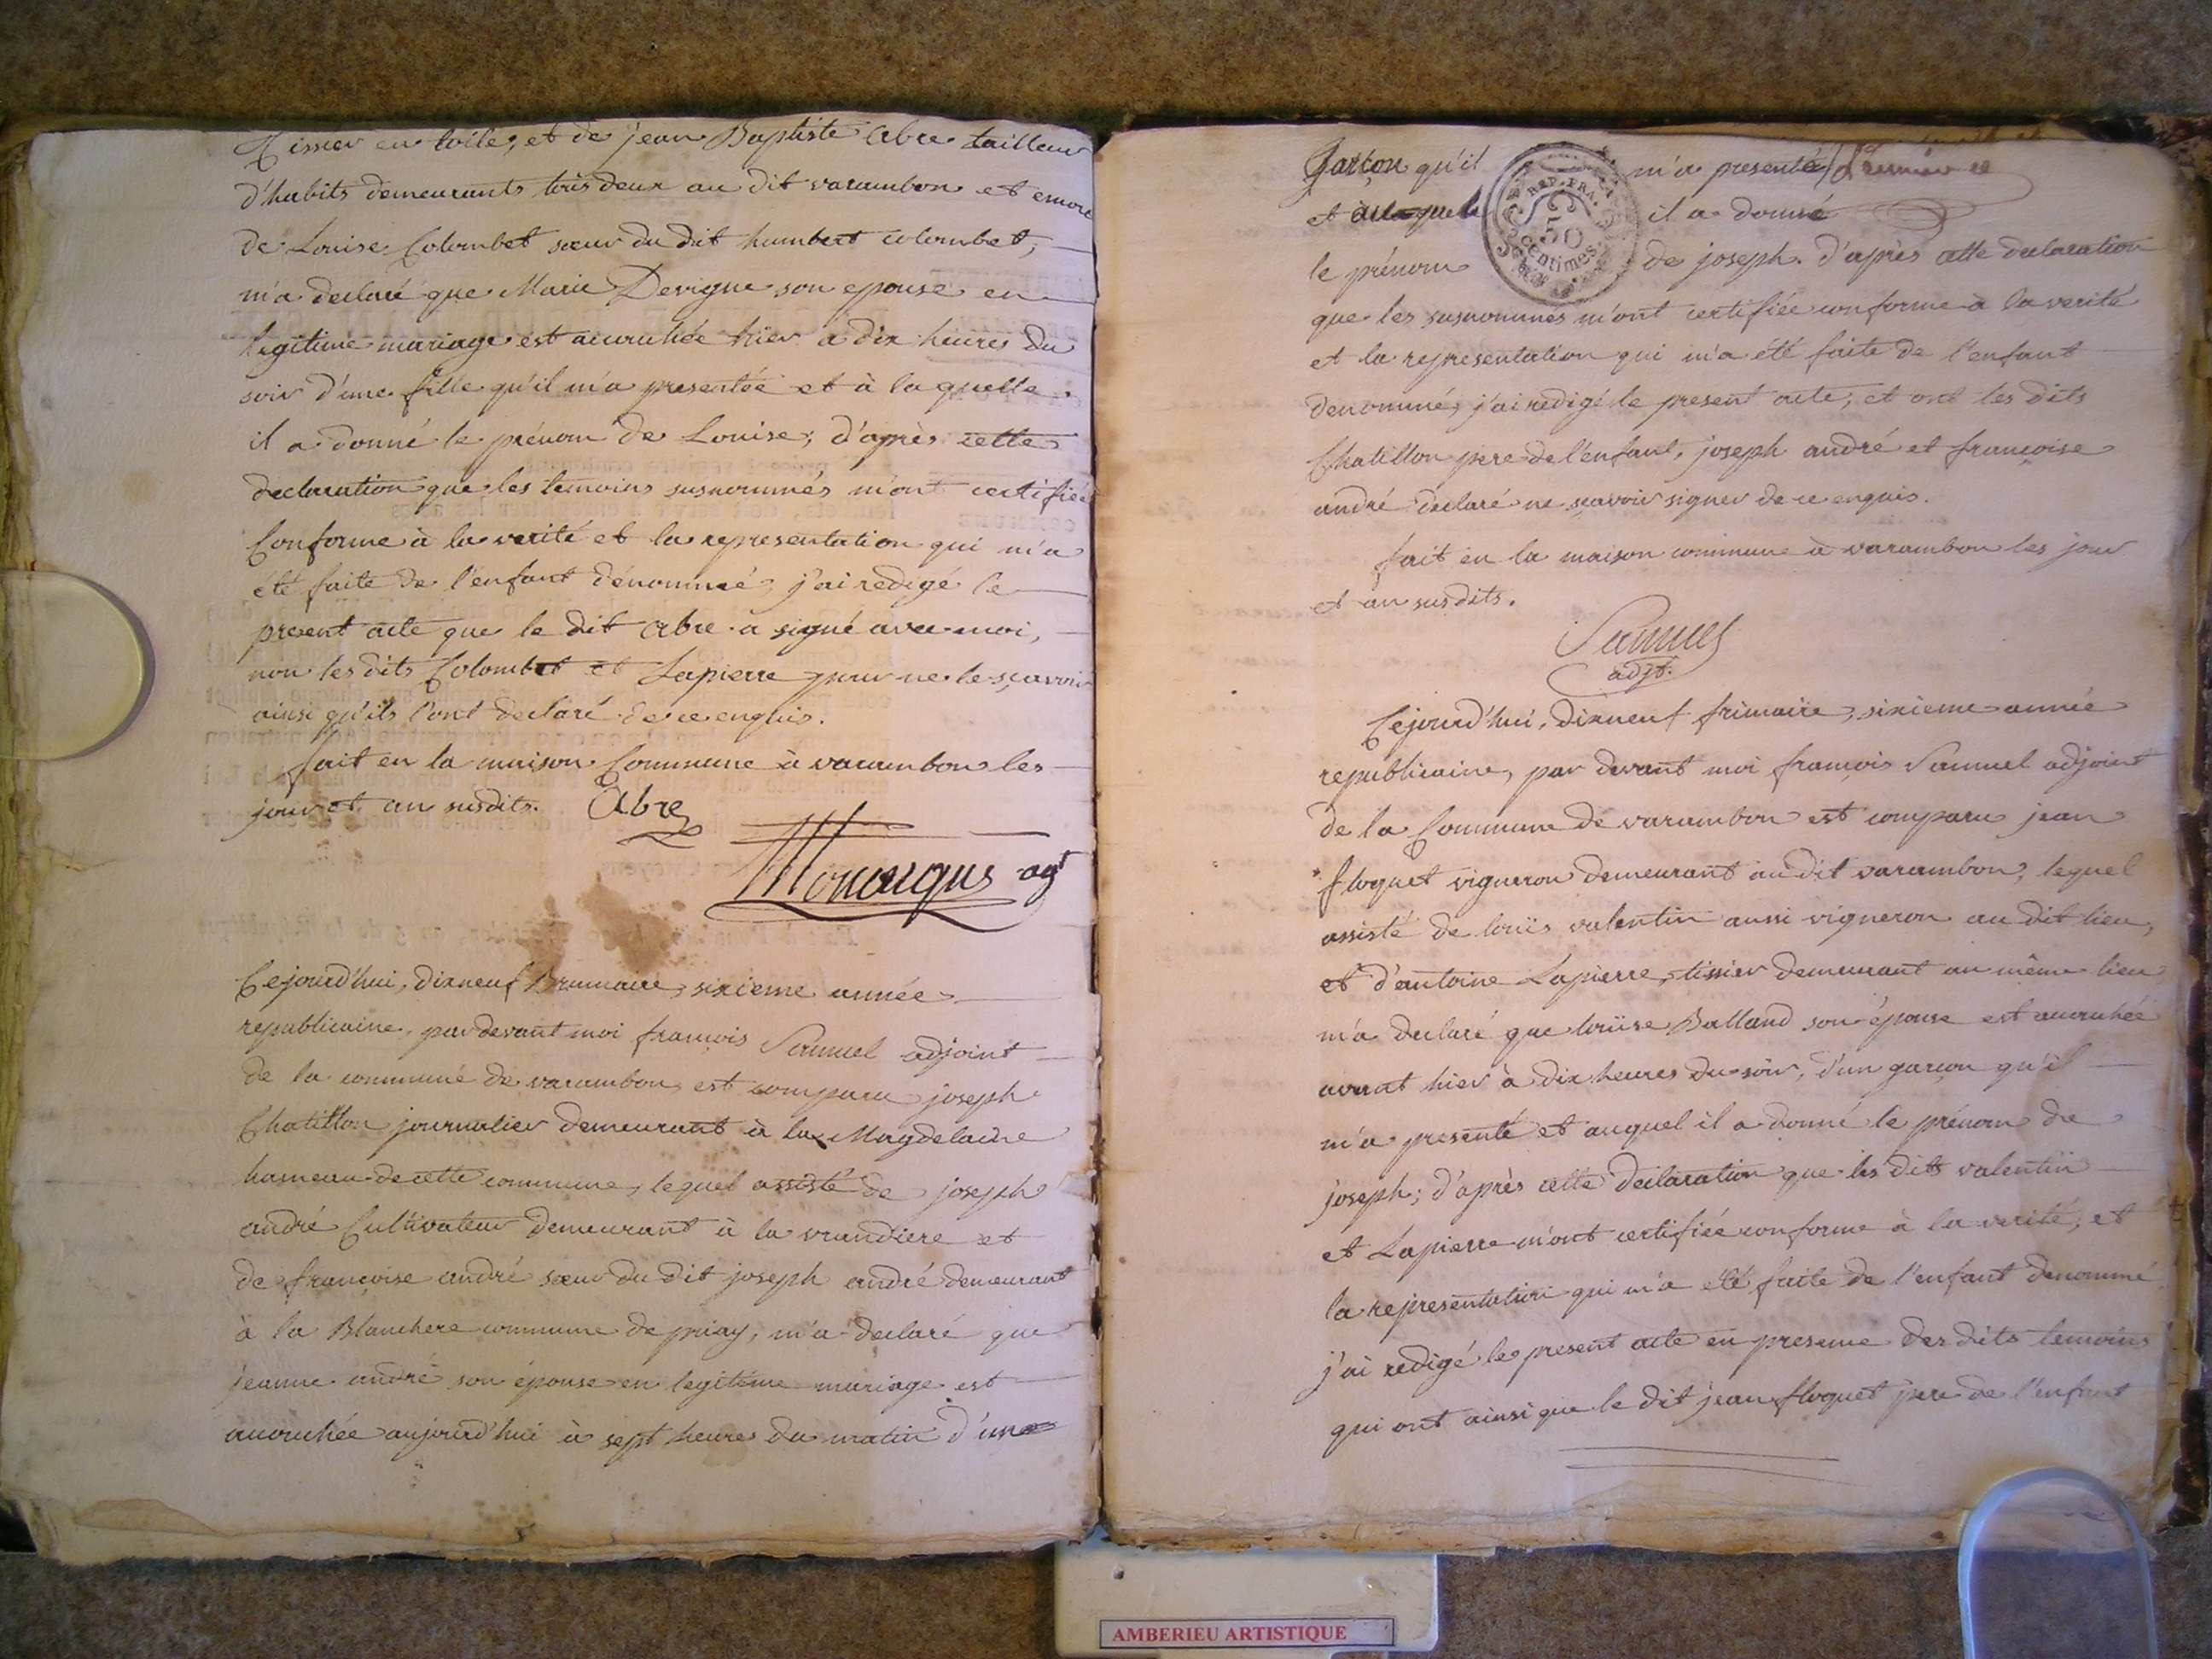 Tissier en toile, et de jean Baptiste Abre tailleur
d'habits demeurants tous deux au dit varambon et encore
de Louise Colombet sœur du dit humbert colombet,
m'a declaré que Marie Devigne son epouse en
legitime mariage est accouchée hier à dix heures du
soir d'une fille qu'il m'a presentée et à la quelle
il a donné le prénom de Louise; d'après cette
declaration que les temoins susnommés m'ont certifiée
Conforme à la verité et la representation qui m'a
été faite de l'enfant dénommé, j'ai redigé le
present acte que le dit Abre a signé avec moi,
non les dits Colombet et Lapierre pour ne le sçavoir
ainsi qu'ils l'ont declaré de ce enquis.
fait en la maison Commune à varambon les
jour et an susdits. Abre
agt
Cejourd'hui, dixneuf Brumaire, sixieme année
republicaine, par devant moi françois Samuel adjoint
de la commune de varambon, est comparu joseph
Chatillon journalier demeurant à la Magdelaine
hameau de cette commune, lequel assisté de joseph
andré Cultivateur demeurant à la vrandiere et
de françoise andré sœur du dit joseph andré demeurant
à la Blanchere commune de priay, m'a declaré que
jeanne andré son épouse en legitime mariage est
accouchée aujourd'hui à sept heures du matin d'un
Garçon qu'il m'a presenté
et il a donné
le prénom de joseph. d'après cette declaration
que les susnommés m'ont certifiée conforme à la verité
et la representation qui m'a été faite de l'enfant
denommé, j'ai redigé le present acte, et ont les dits
Chatillon pere de l'enfant, joseph andré et françoise
andré declaré ne sçavoir signer de ce enquis.
fait en la maison commune à varambon les jour
et an susdits.
Samuel
adjt.
Cejourd'hui, dixneuf frimaire, sixieme année
republicaine, par devant moi françois Samuel adjoint
de la Commune de varambon est comparu jean
floquet vigneron demeurant au dit varambon, lequel
assisté de louis valentin aussi vigneron au dit lieu,
et d'antoine Lapierre, tissier demeurant au même lieu
m'a declaré que louise Balland son épouse est accouchée
avant hier à dix heures du soir, d'un garçon qu'il
m'a presenté et auquel il a donné le prénom de
joseph; d'après cette declaration que les dits valentin
et Lapierre m'ont certifiée conforme à la verité, et
la representation qui m'a été faite de l'enfant denommé
j'ai redigé le present acte en presence des dits temoins
qui ont ainsi que le dit jean floquet pere de l'enfant
REP. FRA.
50
Centimes
AMBERIEU ARTISTIQUE